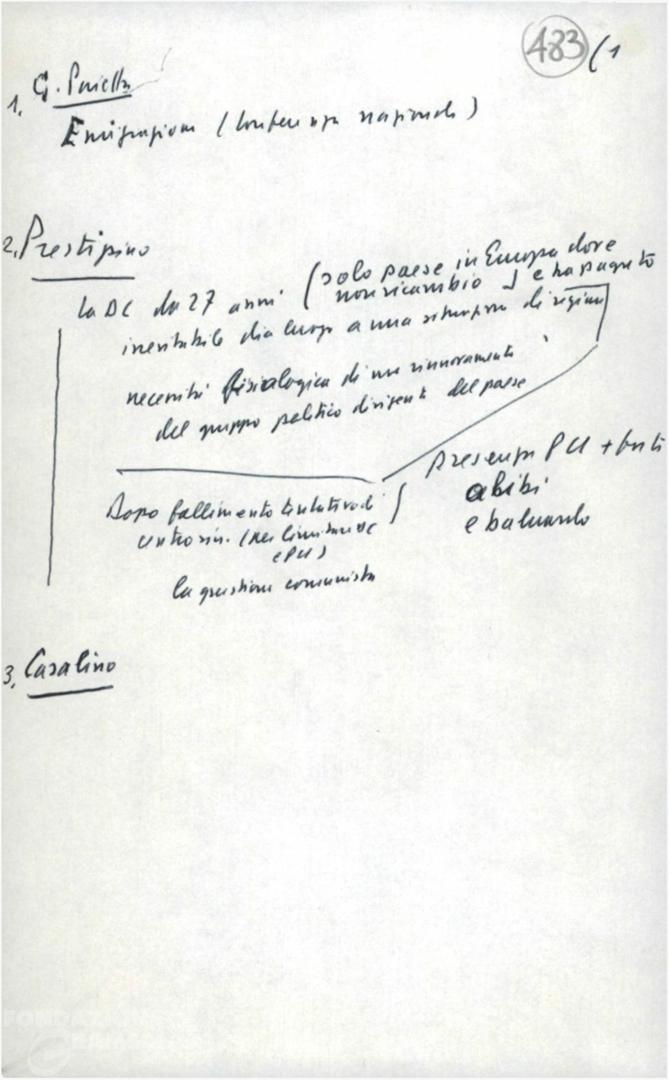 483 (1
1. G. Pajetta
Emigrazione (Conferenza nazionale)
2. Prestipino
la DC da 27 anni (solo paese in Europa dove
non ricambio e ha
inevitabile dia luogo a una di regime
necessità fisiologica di un rinnovamento
del gruppo politico dirigente del paese
Dopo fallimento tentativo di
centro sin. (per DC
e PCI)
la questione comunista
presenza PCI + forti
alibi
e baluardo
3. Casalino
FONDAZIONE